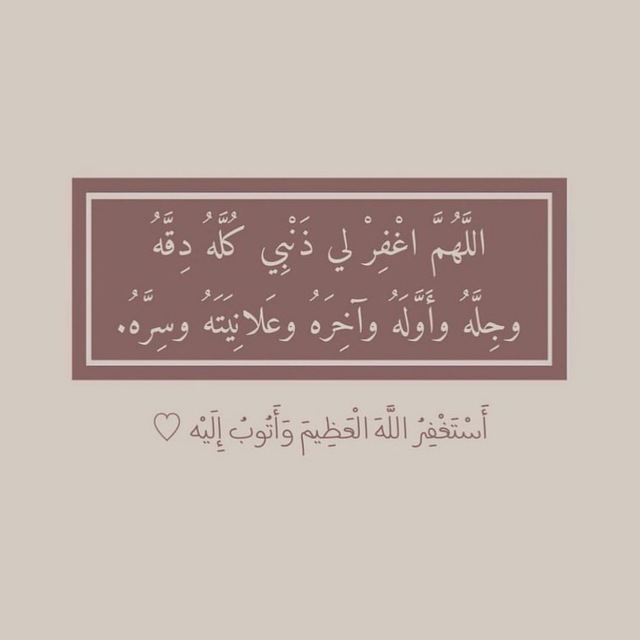 اللَّهُمَّ اغْفِرْ لي ذَنْبِي كُلَّهُ دِقَّهُ
وجِلَّهُ وأَوَّلَهُ وآخِرَهُ وعَلانِيَتَهُ وسِرَّهُ.
أَسْتَغْفِرُ اللَّهَ الْعَظِيمَ وَأَتُوبُ إِلَيْه ♡